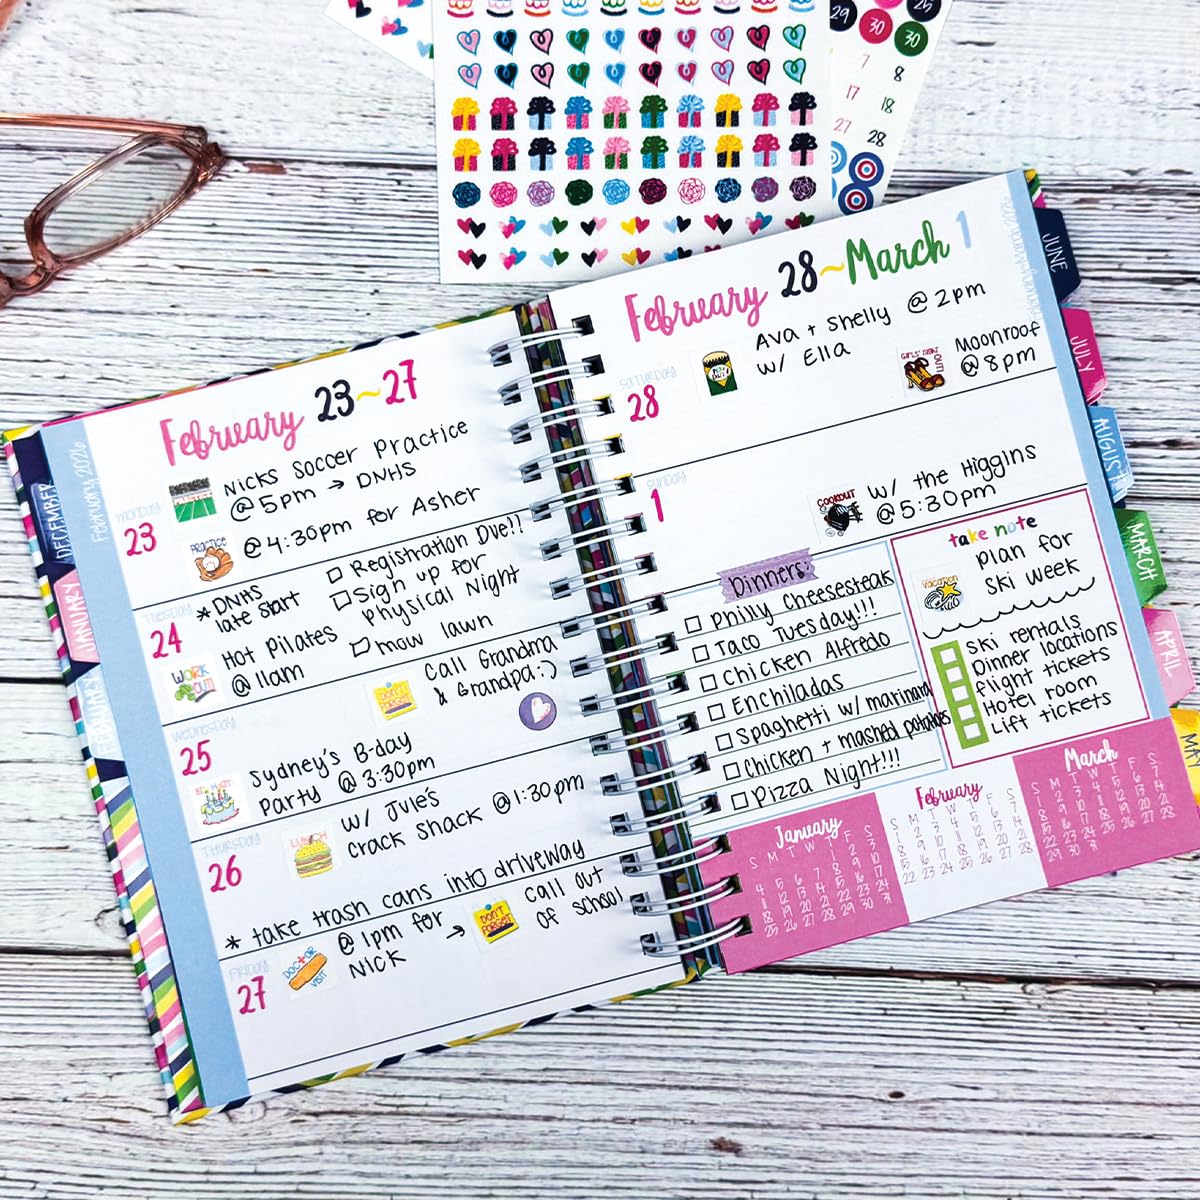 February 23~27
February 2026
Monday
23
PRACTICE
Nicks Soccer Practice
@ 5pm → DNHS
PRACTICE
@ 4:30pm for Asher
Tuesday
24
* DNHS
late start
Registration Due!!
Sign up for
Physical Night
mow lawn
WORK
OUT!
Hot Pilates
@ 11am
Wednesday
25
DON'T
FORGET
Call Grandma
& Grandpa :)
Sydney's B-day
Party @ 3:30pm
Thursday
26
LUNCH
w/ Jule's
Crack Shack @ 1:30pm
* take trash cans into driveway
Friday
27
DOCTOR
VISIT
@ 1pm for
Nick
→
DON'T
FORGET
call out
of school
February 28~March 1
Saturday
28
Ava + Shelly @ 2pm
w/ Ella
GIRLS' NIGHT
OUT
Moonroof
@ 8pm
Sunday
1
COOKOUT
w/ the Higgins
@ 5:30pm
Dinners:
Philly Cheesesteak
Taco Tuesday!!!
Chicken Alfredo
Enchiladas
Spaghetti w/ marinara
Chicken + mashed potatoes
Pizza Night!!!
take note
Vacation
Plan for
Ski week
Ski rentals
Dinner locations
flight tickets
Hotel room
Lift tickets
January
S M T W T F S
1 2 3
4 5 6 7 8 9 10
11 12 13 14 15 16 17
18 19 20 21 22 23 24
25 26 27 28 29 30 31
February
S M T W T F S
1 2 3 4 5 6 7
8 9 10 11 12 13 14
15 16 17 18 19 20 21
22 23 24 25 26 27 28
March
S M T W T F S
1 2 3 4 5 6 7
8 9 10 11 12 13 14
15 16 17 18 19 20 21
22 23 24 25 26 27 28
29 30 31
DECEMBER
JANUARY
FEBRUARY
JUNE
JULY
AUGUST
MARCH
APRIL
MAY
29 30 25
30 30
7 8
17 18
27 28